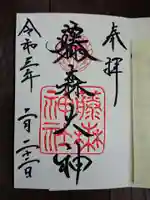 奉拝
藤森大神
藤森
神社
令和三年
二月二十三日